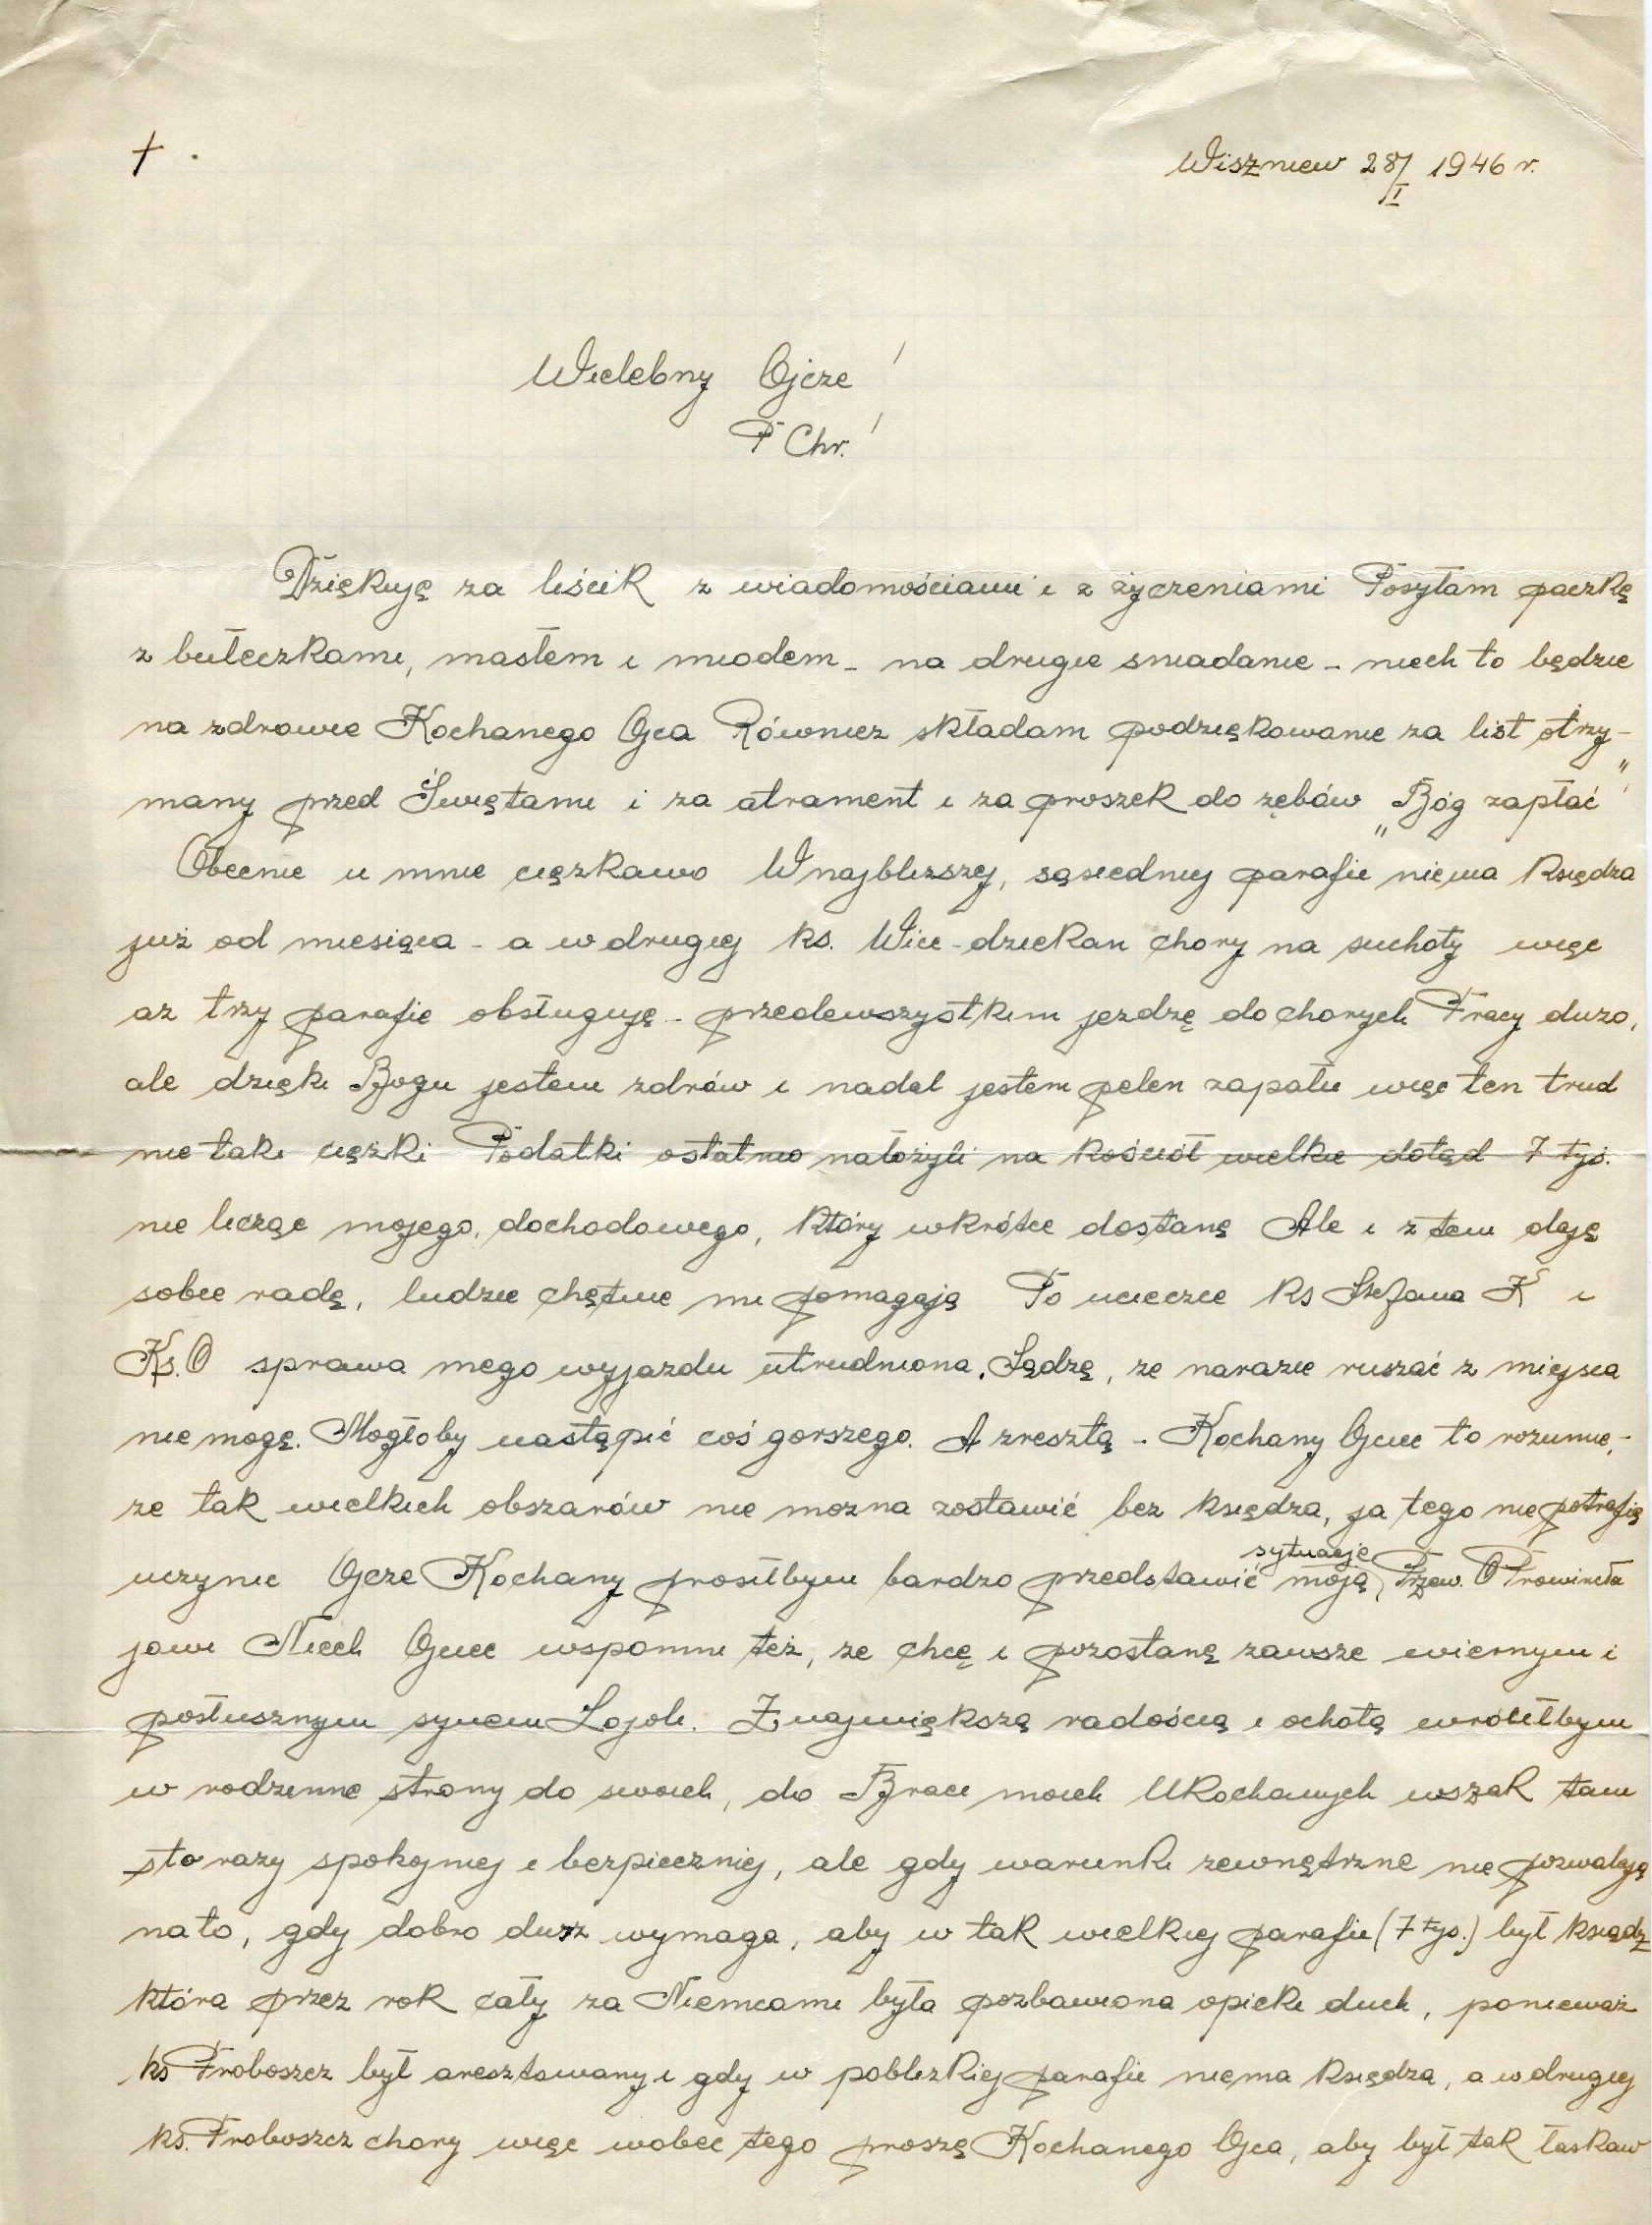 †
Wiszniew 28/I 1946 r.
Wielebny Ojcze!
P Chr.!
Dziękuję za liścik z wiadomościami i z życzeniami Posyłam paczkę
z buteczkami, masłem i miodem - na drugie sniadanie - niech to będzie
na zdrowie Kochanego Ojca Równiez składam podziękowanie za list otrzy-
many przed Świętami i za atrament i za proszek do zębów „Bóg zapłać"!
Obecnie u mnie cięzkawo W najblizszej, sąsiedniej parafii niema księdza
już od miesiąca - a w drugiej ks. Wice-dziekan chory na suchoty więc
az trzy parafie obsługuję - przedewszystkim jezdzę do chorych Pracy duzo,
ale dzięki Bogu jestem zdrów i nadal jestem pelen zapału więc ten trud
nie taki cięzki Podatki ostatnio nałożyli na kościół wielkie dotąd 7 tys.
nie licząc mojego, dochodowego, który wkrótce dostanę Ale i z tem daję
sobie radę, ludzie chętnie mi pomagają Po ucieczce ks Stefana K i
Ks. O sprawa mego wyjazdu utrudniona. Sądzę, ze narazie ruszać z miejsca
nie mogę. Mogłoby nastąpić coś gorszego. A zresztą - Kochany Ojciec to rozumie, -
ze tak wielkich obszarów nie mozna zostawić bez księdza, ja tego nie potrafię
uczynic Ojcze Kochany prosiłbym bardzo przedstawić moją sytuację Przew. O Prowincła
jowi Niech Ojciec wspomni też, ze chcę i pozostanę zawsze wiernym i
posłusznym synem Lojoli. Z największą radością i ochotą wróciłbym
w rodzinne strony do swoich, do Braci moich Ukochanych wszak tam
sto razy spokojniej i bezpieczniej, ale gdy warunki zewnętrzne nie pozwalają
na to, gdy dobro dusz wymaga, aby w tak wielkiej parafii (7 tys.) był ksiądz
która przez rok cały za Niemcami była pozbawiona opieki duch, ponieważ
ks Proboszcz był aresztowany i gdy w poblizkiej parafii niema księdza, a w drugiej
ks. Proboszcz chory więc wobec tego proszę Kochanego Ojca, aby był tak łaskaw